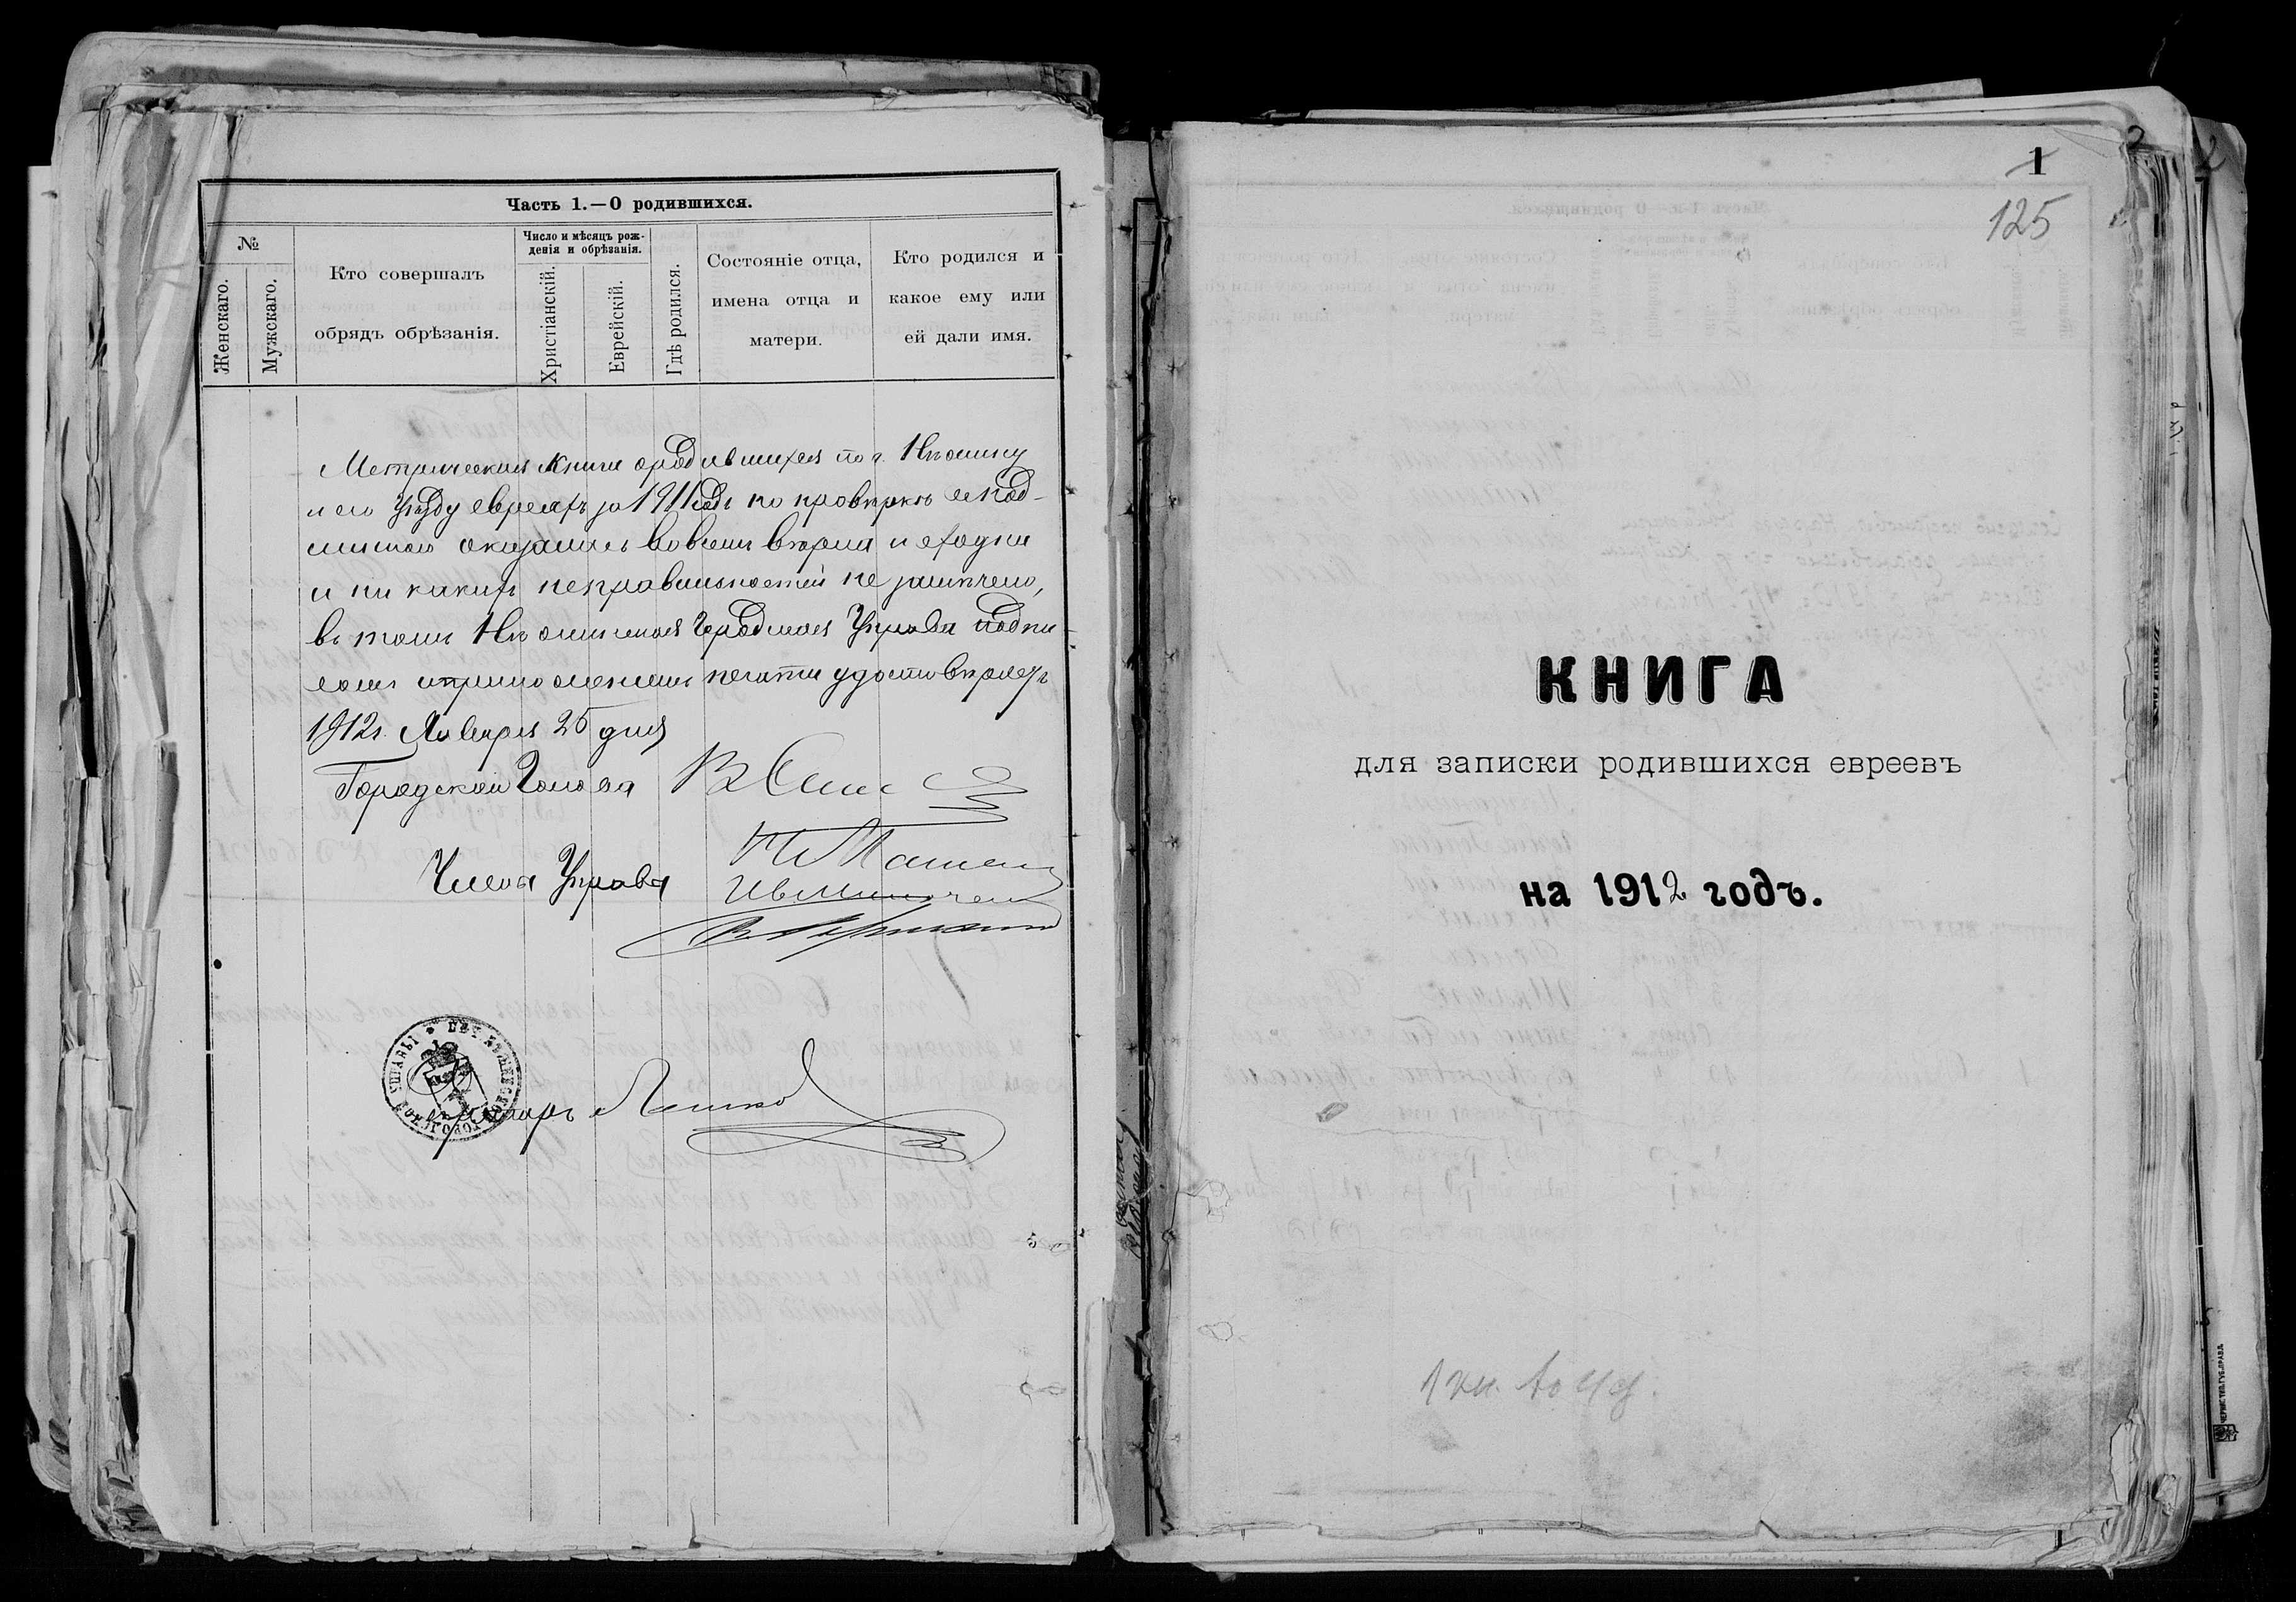 Часть 1.—О родившихся.
№
Женскаго.
Мужскаго.
Кто совершалъ
обрядъ обрѣзанія.
Число и мѣсяцъ рож-
денія и обрѣзанія.
Христіанскій.
Еврейскій.
Гдѣ родился.
Состояніе отца,
имена отца и
матери.
Кто родился и
какое ему или
ей дали имя.
Метрическая книга о родившихся по г. Нѣжину
и его уѣзду евреяхъ за 1911 годъ по провѣркѣ ея под-
оказалась во всемъ вѣрна и сходна
и ни какихъ неправильностей не замѣчено,
въ томъ Нѣжинская Городская Управа подпи-
сомъ и приложеніемъ печати удостовѣряетъ
1912 г. Января 25 дня
Городской Голова
Члены Управы
Секретарь
1
125
КНИГА
для записки родившихся евреевъ
на 1912 годъ.